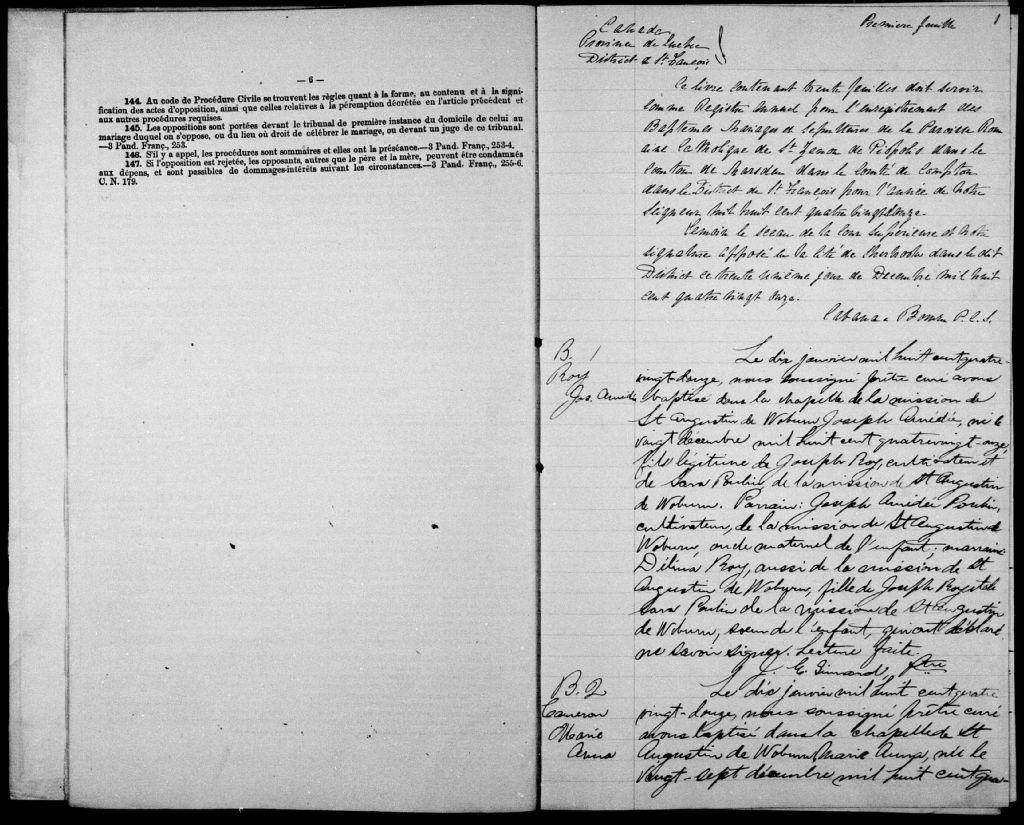 — 6 —
144. Au code de Procédure Civile se trouvent les règles quant à la forme, au contenu et à la signi-
fication des actes d'opposition, ainsi que celles relatives à la péremption décrétée en l'article précédent et
aux autres procédures requises.
145. Les oppositions sont portées devant le tribunal de première instance du domicile de celui au
mariage duquel on s'oppose, ou du lieu où droit de célébrer le mariage, ou devant un juge de ce tribunal.
—3 Pand. Franç., 253.
146. S'il y a appel, les procédures sont sommaires et elles ont la préséance.—3 Pand. Franç., 253-4.
147. Si l'opposition est rejetée, les opposants, autres que le père et la mère, peuvent être condamnés
aux dépens, et sont passibles de dommages-intérêts suivant les circonstances.—3 Pand. Franç., 255-6.
C. N. 179.
Première feuille 1
Canada
Province de Québec
District de St. François
Ce livre contenant trente feuilles doit servir
comme Registre annuel pour l'enregistrement des
Baptemes Mariages et sepultures de la Paroisse Rom
aine Catholique de St. Zenon de Piopolis dans le
canton de Marsden dans le Comté de Compton
dans le District de St. François pour l'année de Notre
Seigneur mil huit cent quatre vingt douze.
Temoin le sceau de la Cour Supérieure et notre
signature apposé en la Cité de Sherbrooke dans le dit
District ce trente unième jour de Decembre mil huit
cent quatre vingt onze.
Cabana & Bowen P.C.S.
B. 1
Roy
Jos. Amédée
Le dix janvier mil huit cent quatre-
vingt-douze, nous soussigné prêtre curé avons
baptisé dans la chapelle de la mission de
St Augustin de Woburn Joseph Amédée, né le
vingt décembre mil huit cent quatrevingt-onze,
fils légitime de Joseph Roy, cultivateur et
de Sara Poulin de la mission de St Augustin
de Woburn. Parrain: Joseph Amédée Poulin,
cultivateur, de la mission de St Augustin de
Woburn, oncle maternel de l'enfant; marraine
Délina Roy, aussi de la mission de St
Augustin de Woburn, fille de Joseph Roy et de
Sara Poulin de la mission de St Augustin
de Woburn, sœur de l'enfant, qui ont déclaré
ne savoir signer. Lecture faite.
J. E. Ptre
B. 2
Cameron
Marie
Anna
Le dix janvier mil huit cent quatre
vingt-douze, nous soussigné prêtre curé
avons baptisé dans la chapelle de St
Augustin de Woburn Marie Anna, née le
vingt-sept décembre mil huit cent qua-